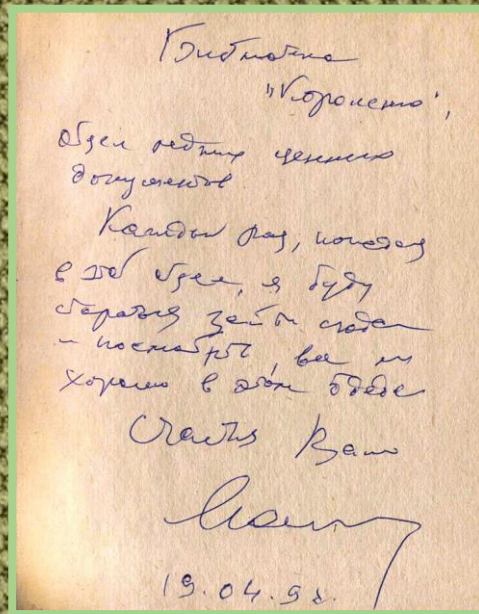 Библиотека
"Короленко",
отдел редких ценных
документов
Каждый раз, попадая
в этот отдел, я буду
стараться зайти сюда
и посмотреть, все ли
хорошо в этом отделе
Счастья Вам
19.04.98.